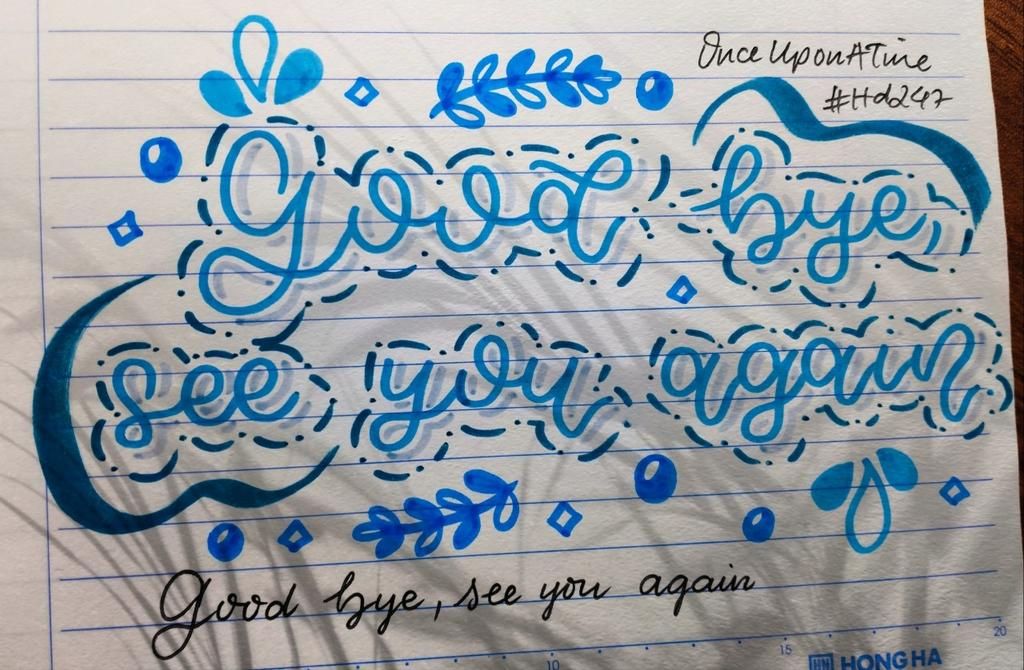 OnceUponATime
#Hd247
Good bye,
see you again
Good bye, see you again
10 15 20
HN HONG HA